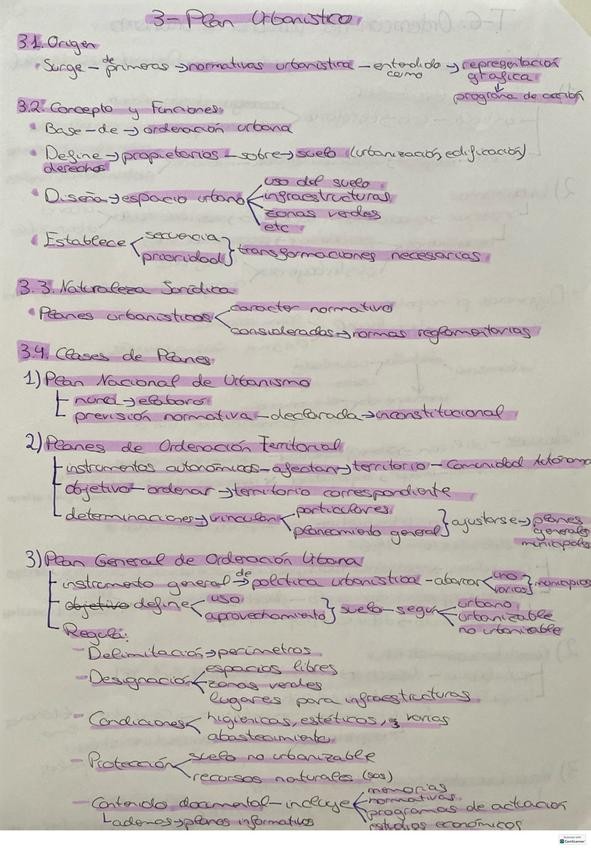 3- Plan Urbanístico
3.1. Origen
· Surge - de primeras → normativas urbanística - entendido como → representación gráfica
↓
programa de acción
3.2. Concepto y Funciones
· Base - de → ordenación urbana
· Define → propietarios - sobre → suelo (urbanización, edificación)
derechos
· Diseña → espacio urbano uso del suelo
infraestructuras
zonas verdes
etc
· Establece secuencia
prioridad } transformaciones necesarias
3.3. Naturaleza Jurídica
· Planes urbanísticos caracter normativo
considerados → normas reglamentarias
3.4. Clases de Planes
1) Plan Nacional de Urbanismo
nunca → elaboró
previsión normativa - declarada → inconstitucional
2) Planes de Ordenación Territorial
instrumentos autonómicos - afectan → territorio - Comunidad Autónoma
objetivo - ordenar → territorio correspondiente
determinaciones → vinculan particulares
planeamiento general } ajustarse → planes generales municipales
3) Plan General de Ordenación Urbana
instrumento general → de política urbanística - abarca uno
varios } municipios
objetivo define uso
aprovechamiento } suelo - segun urbano
urbanizable
no urbanizable
Regula:
- Delimitación → perímetros
- Designación espacios libres
zonas verdes
lugares para infraestructuras
- Condiciones higiénicas, estéticas, y varias
abastecimiento
- Protección suelo no urbanizable
recursos naturales
- Contenido documental - incluye memorias
normativas
programas de actuación
estudios económicos
además → planes informativos
CamScanner